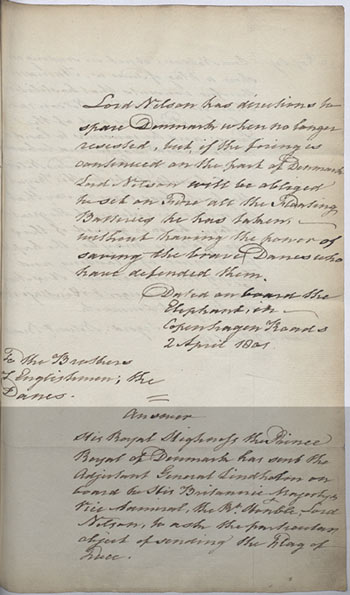 Lord Nelson has directions to
spare Denmark when no longer
resested, but if the fireing is
continued on the part of Denmark
Lord Nelson will be obliged
to set on Fire all the Floating
Batteries he has taken,
without having the power of
saving the brave Danes who
have defended them.
Dated on board the
Elephant, in
Copenhagen Roads
2 April 1801
To the Brothers
of Englishmen, the
Danes.
Answer
His Royal Highness the Prince
Royal of Denmark has sent the
Adjutant General Lindholm on
board to His Britannic Majestys
Vice Admiral, the Rt. Honble. Lord
Nelson, to ask the particular
object of sending the Flag of
Truce.